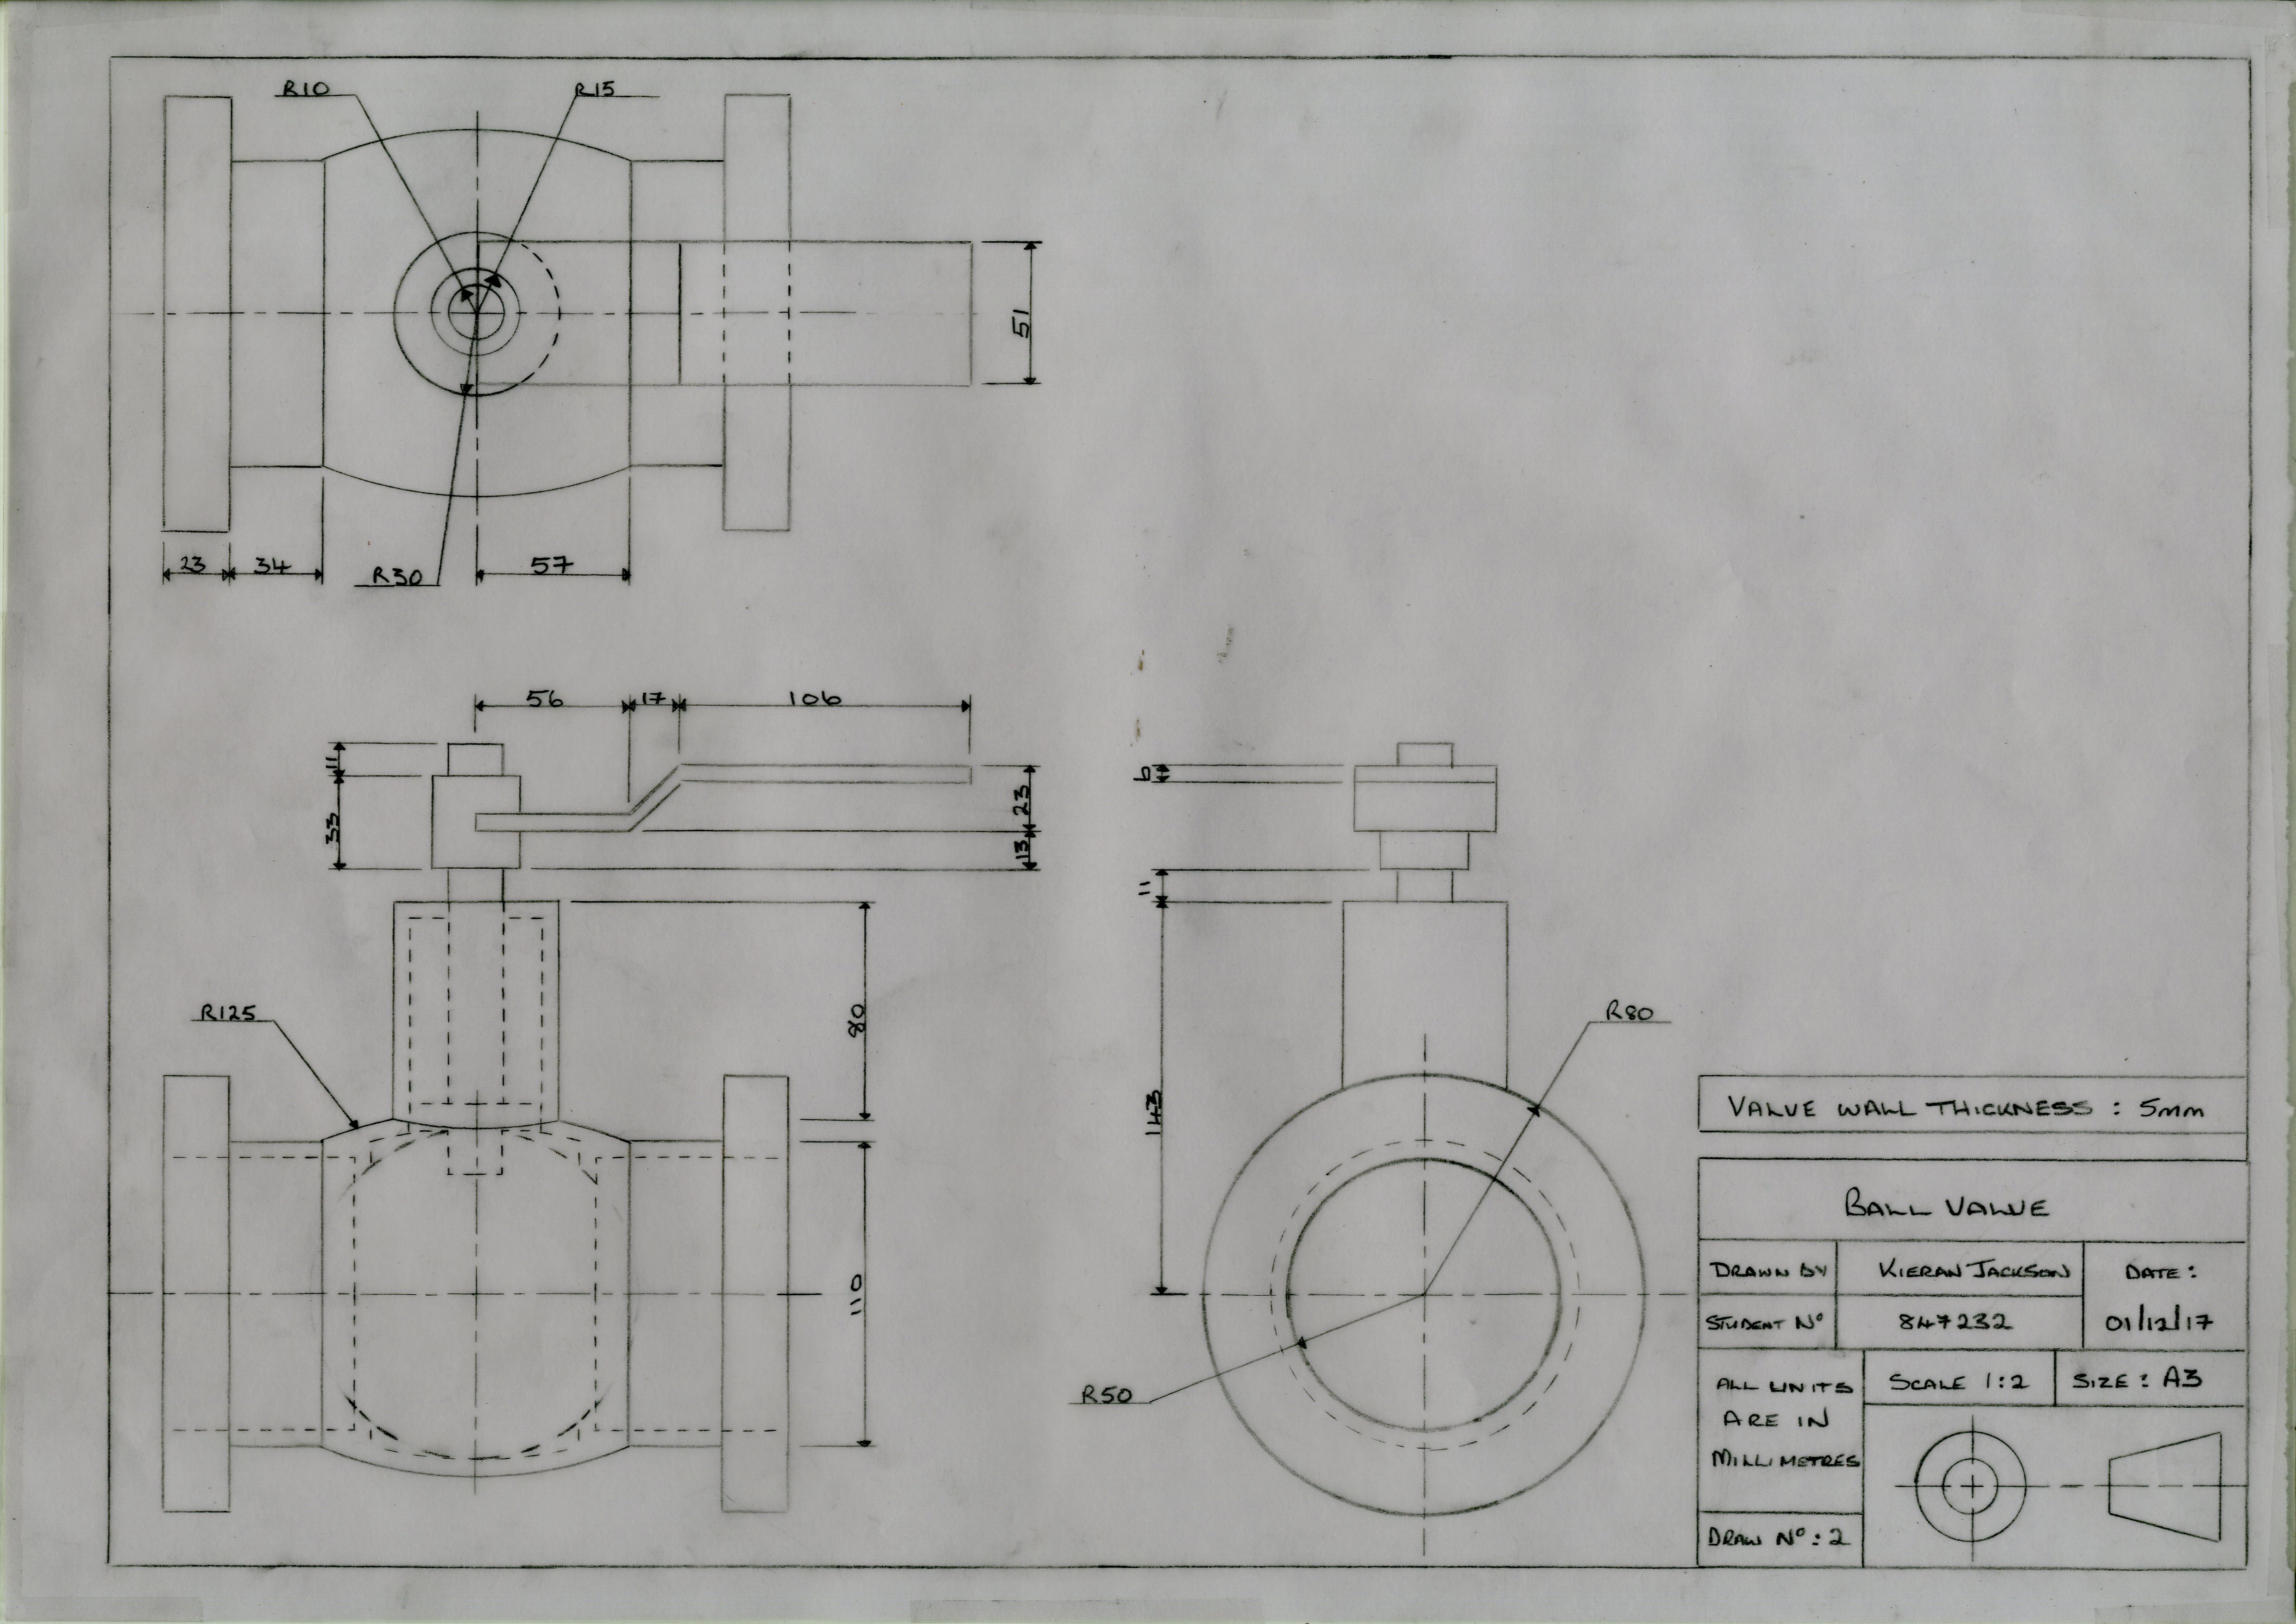 R10
R15
51
23
34
R30
57
56
17
106
11
33
23
13
6
11
R125
80
R80
143
110
R50
VALVE WALL THICKNESS : 5mm
BALL VALVE
DRAWN BY
KIERAN JACKSON
DATE :
STUDENT Nº
847232
01/12/17
ALL UNITS
ARE IN
MILLIMETRES
SCALE 1:2
SIZE : A3
DRAW Nº : 2